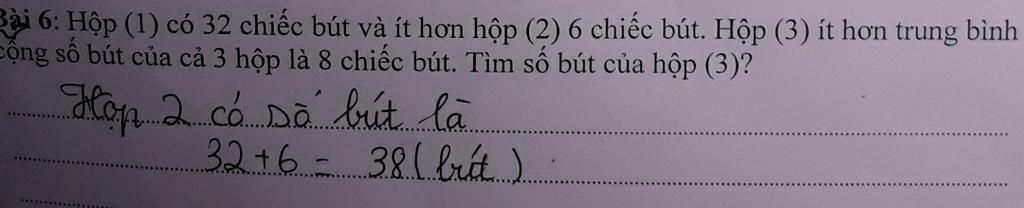 Bài 6: Hộp (1) có 32 chiếc bút và ít hơn hộp (2) 6 chiếc bút. Hộp (3) ít hơn trung bình
cộng số bút của cả 3 hộp là 8 chiếc bút. Tìm số bút của hộp (3)?
Hộp 2 có số bút là
32 + 6 = 38 ( bút )